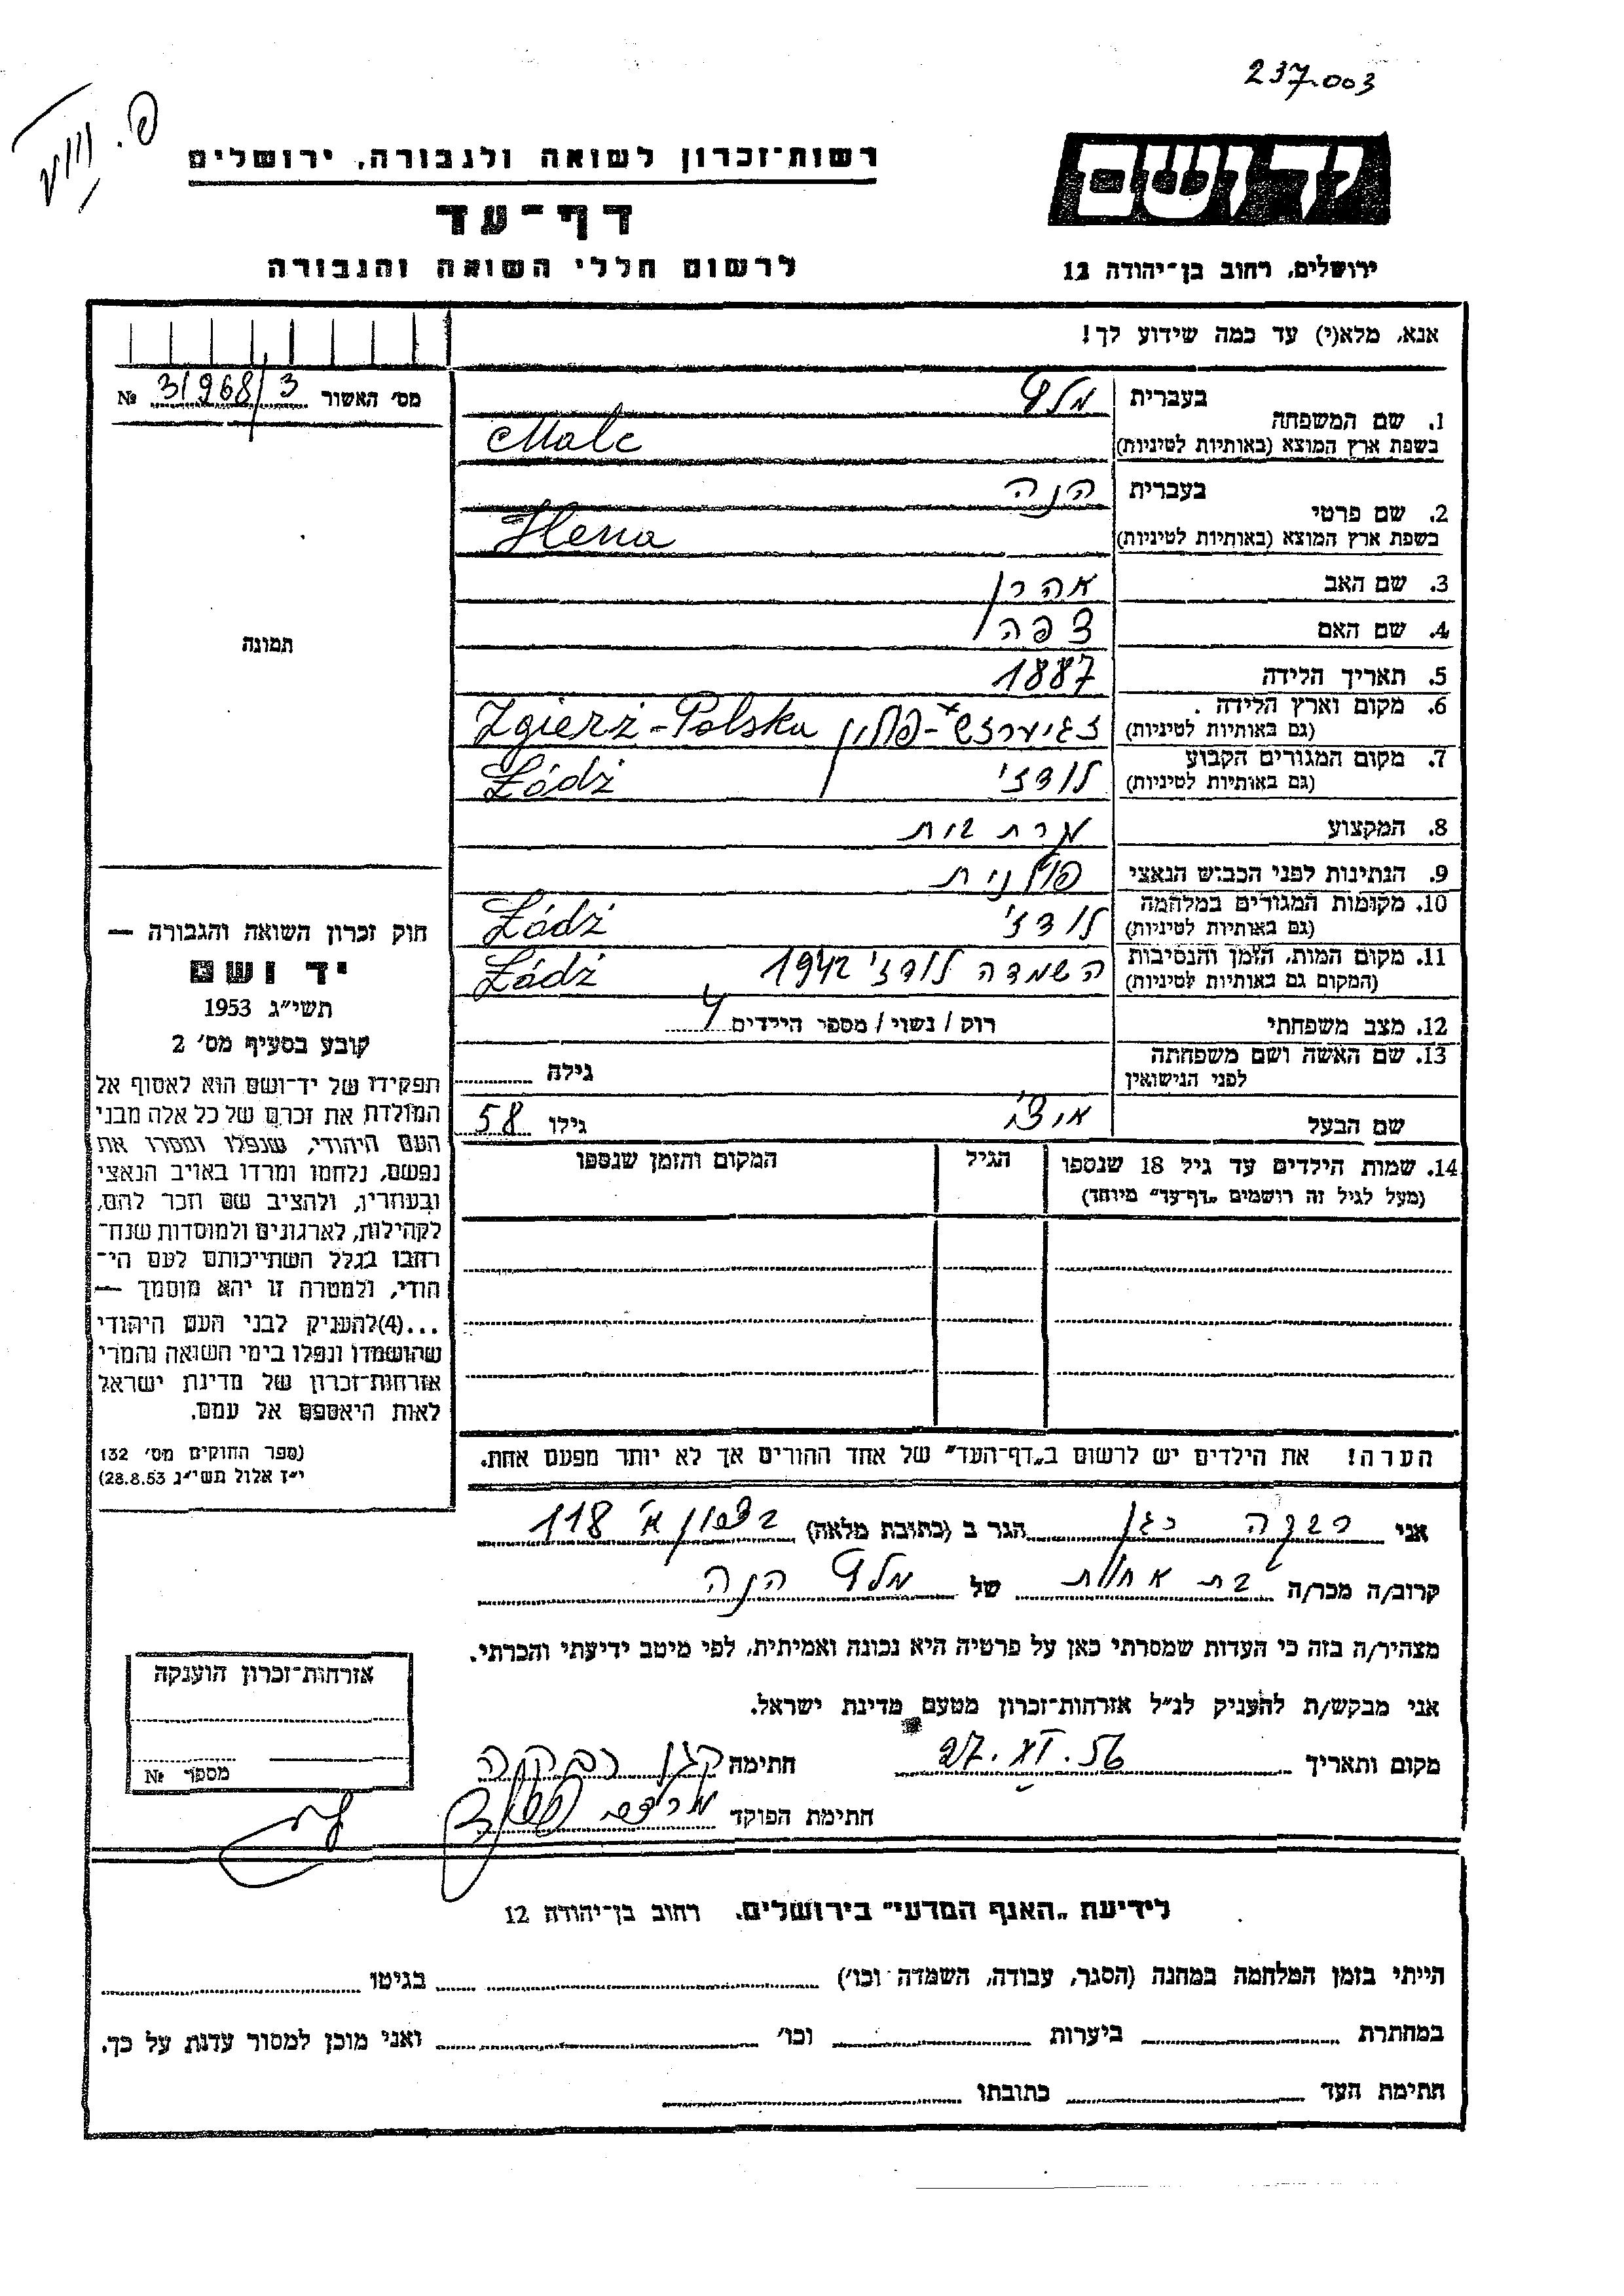 237.003
יד ושם
רשות־זכרון לשואה ולגבורה, ירושלים
דף־עד
לרשום חללי השואה והגבורה
ירושלים, רחוב בן־יהודה 12
אנא, מלא(י) עד כמה שידוע לך!
מס׳ האשור 31968/3 №
1. שם המשפחה
בעברית מלץ
בשפת ארץ המוצא (באותיות לטיניות) Malc
2. שם פרטי
בעברית הנה
בשפת ארץ המוצא (באותיות לטיניות) Hena
3. שם האב אהרן
4. שם האם
5. תאריך הלידה 1887
6. מקום וארץ הלידה
(גם באותיות לטיניות) זגיערזש - פולין Zgierż - Polska
7. מקום המגורים הקבוע
(גם באותיות לטיניות) לודז׳ Łódż
8. המקצוע עקרת בית
9. הנתינות לפני הכבוש הנאצי פולנית
10. מקומות המגורים במלחמה
(גם באותיות לטיניות) לודז׳ Łódż
11. מקום המות, הזמן והנסיבות
(המקום גם באותיות לטיניות) השמדה לודז׳ 1942 Łódż
12. מצב משפחתי רוק / נשוי / מספר הילדים 4
13. שם האשה ושם משפחתה
לפני הנישואין
גילה
שם הבעל איצ׳ גילו 58
14. שמות הילדים עד גיל 18 שנספו
(מעל לגיל זה רושמים „דף־עד״ מיוחד)
הגיל
המקום והזמן שנספו
הערה! את הילדים יש לרשום ב„דף־העד״ של אחד ההורים אך לא יותר מפעם אחת.
תמונה
חוק זכרון השואה והגבורה —
יד ושם
תשי״ג 1953
קובע בסעיף מס׳ 2
תפקידו של יד־ושם הוא לאסוף אל
המולדת את זכרם של כל אלה מבני
העם היהודי, שנפלו ומסרו את
נפשם, נלחמו ומרדו באויב הנאצי
ובעוזריו, ולהציב שם וזכר להם,
לקהילות, לארגונים ולמוסדות שנח־
רבו בגלל השתייכותם לעם הי־
הודי, ולמטרה זו יהא מוסמך —
...(4)להעניק לבני העם היהודי
שהושמדו ונפלו בימי השואה והמרי
אזרחות־זכרון של מדינת ישראל
לאות היאספם אל עמם.
(ספר החוקים מס׳ 132
י״ז אלול תשי״ג 28.8.53)
אני רבקה כגן הגר ב (כתובת מלאה) בצרון א׳ 118
קרוב/ה מכר/ה בת אחות של מלץ הנה
מצהיר/ה בזה כי העדות שמסרתי כאן על פרטיה היא נכונה ואמיתית, לפי מיטב ידיעתי והכרתי.
אני מבקש/ת להעניק לנ״ל אזרחות־זכרון מטעם מדינת ישראל.
מקום ותאריך 27.XI.56 חתימה כגן רבקה
חתימת הפוקד
אזרחות־זכרון הוענקה
מספר №
לידיעת „האגף המדעי״ בירושלים, רחוב בן־יהודה 12
הייתי בזמן המלחמה במחנה (הסגר, עבודה, השמדה וכו׳) בגיטו
במחתרת ביערות וכו׳ ואני מוכן למסור עדות על כך.
חתימת העד כתובתו